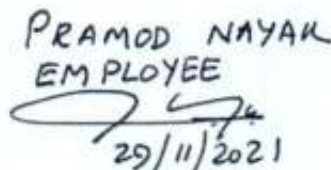 PRAMOD NAYAK
EMPLOYEE
29/11/2021